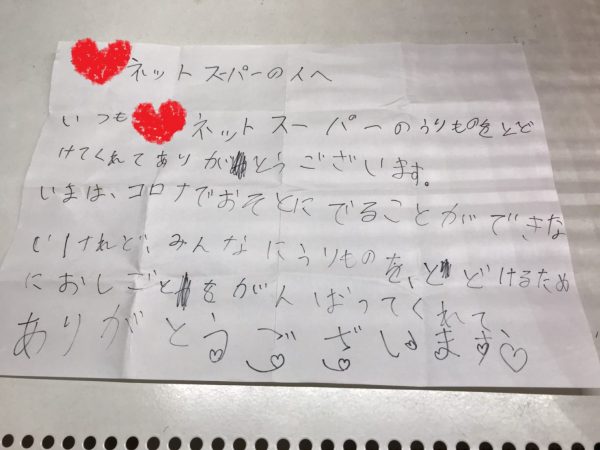 ネットスーパーの人へ
いつも ネットスーパーのうりものをとど
けてくれてありがとうございます。
いまは、コロナでおそとにでることができな
いけれど、みんなにうりものを、とどけるため
におしごとをがんばってくれて
ありがとうございます♡